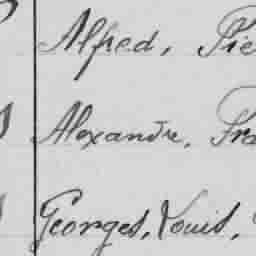 Alfred, Pie
Alexandre, Fra
Georges, Louis,